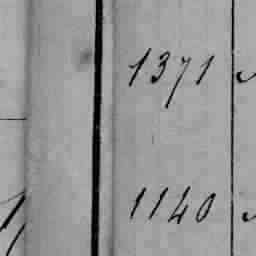 1371
1140